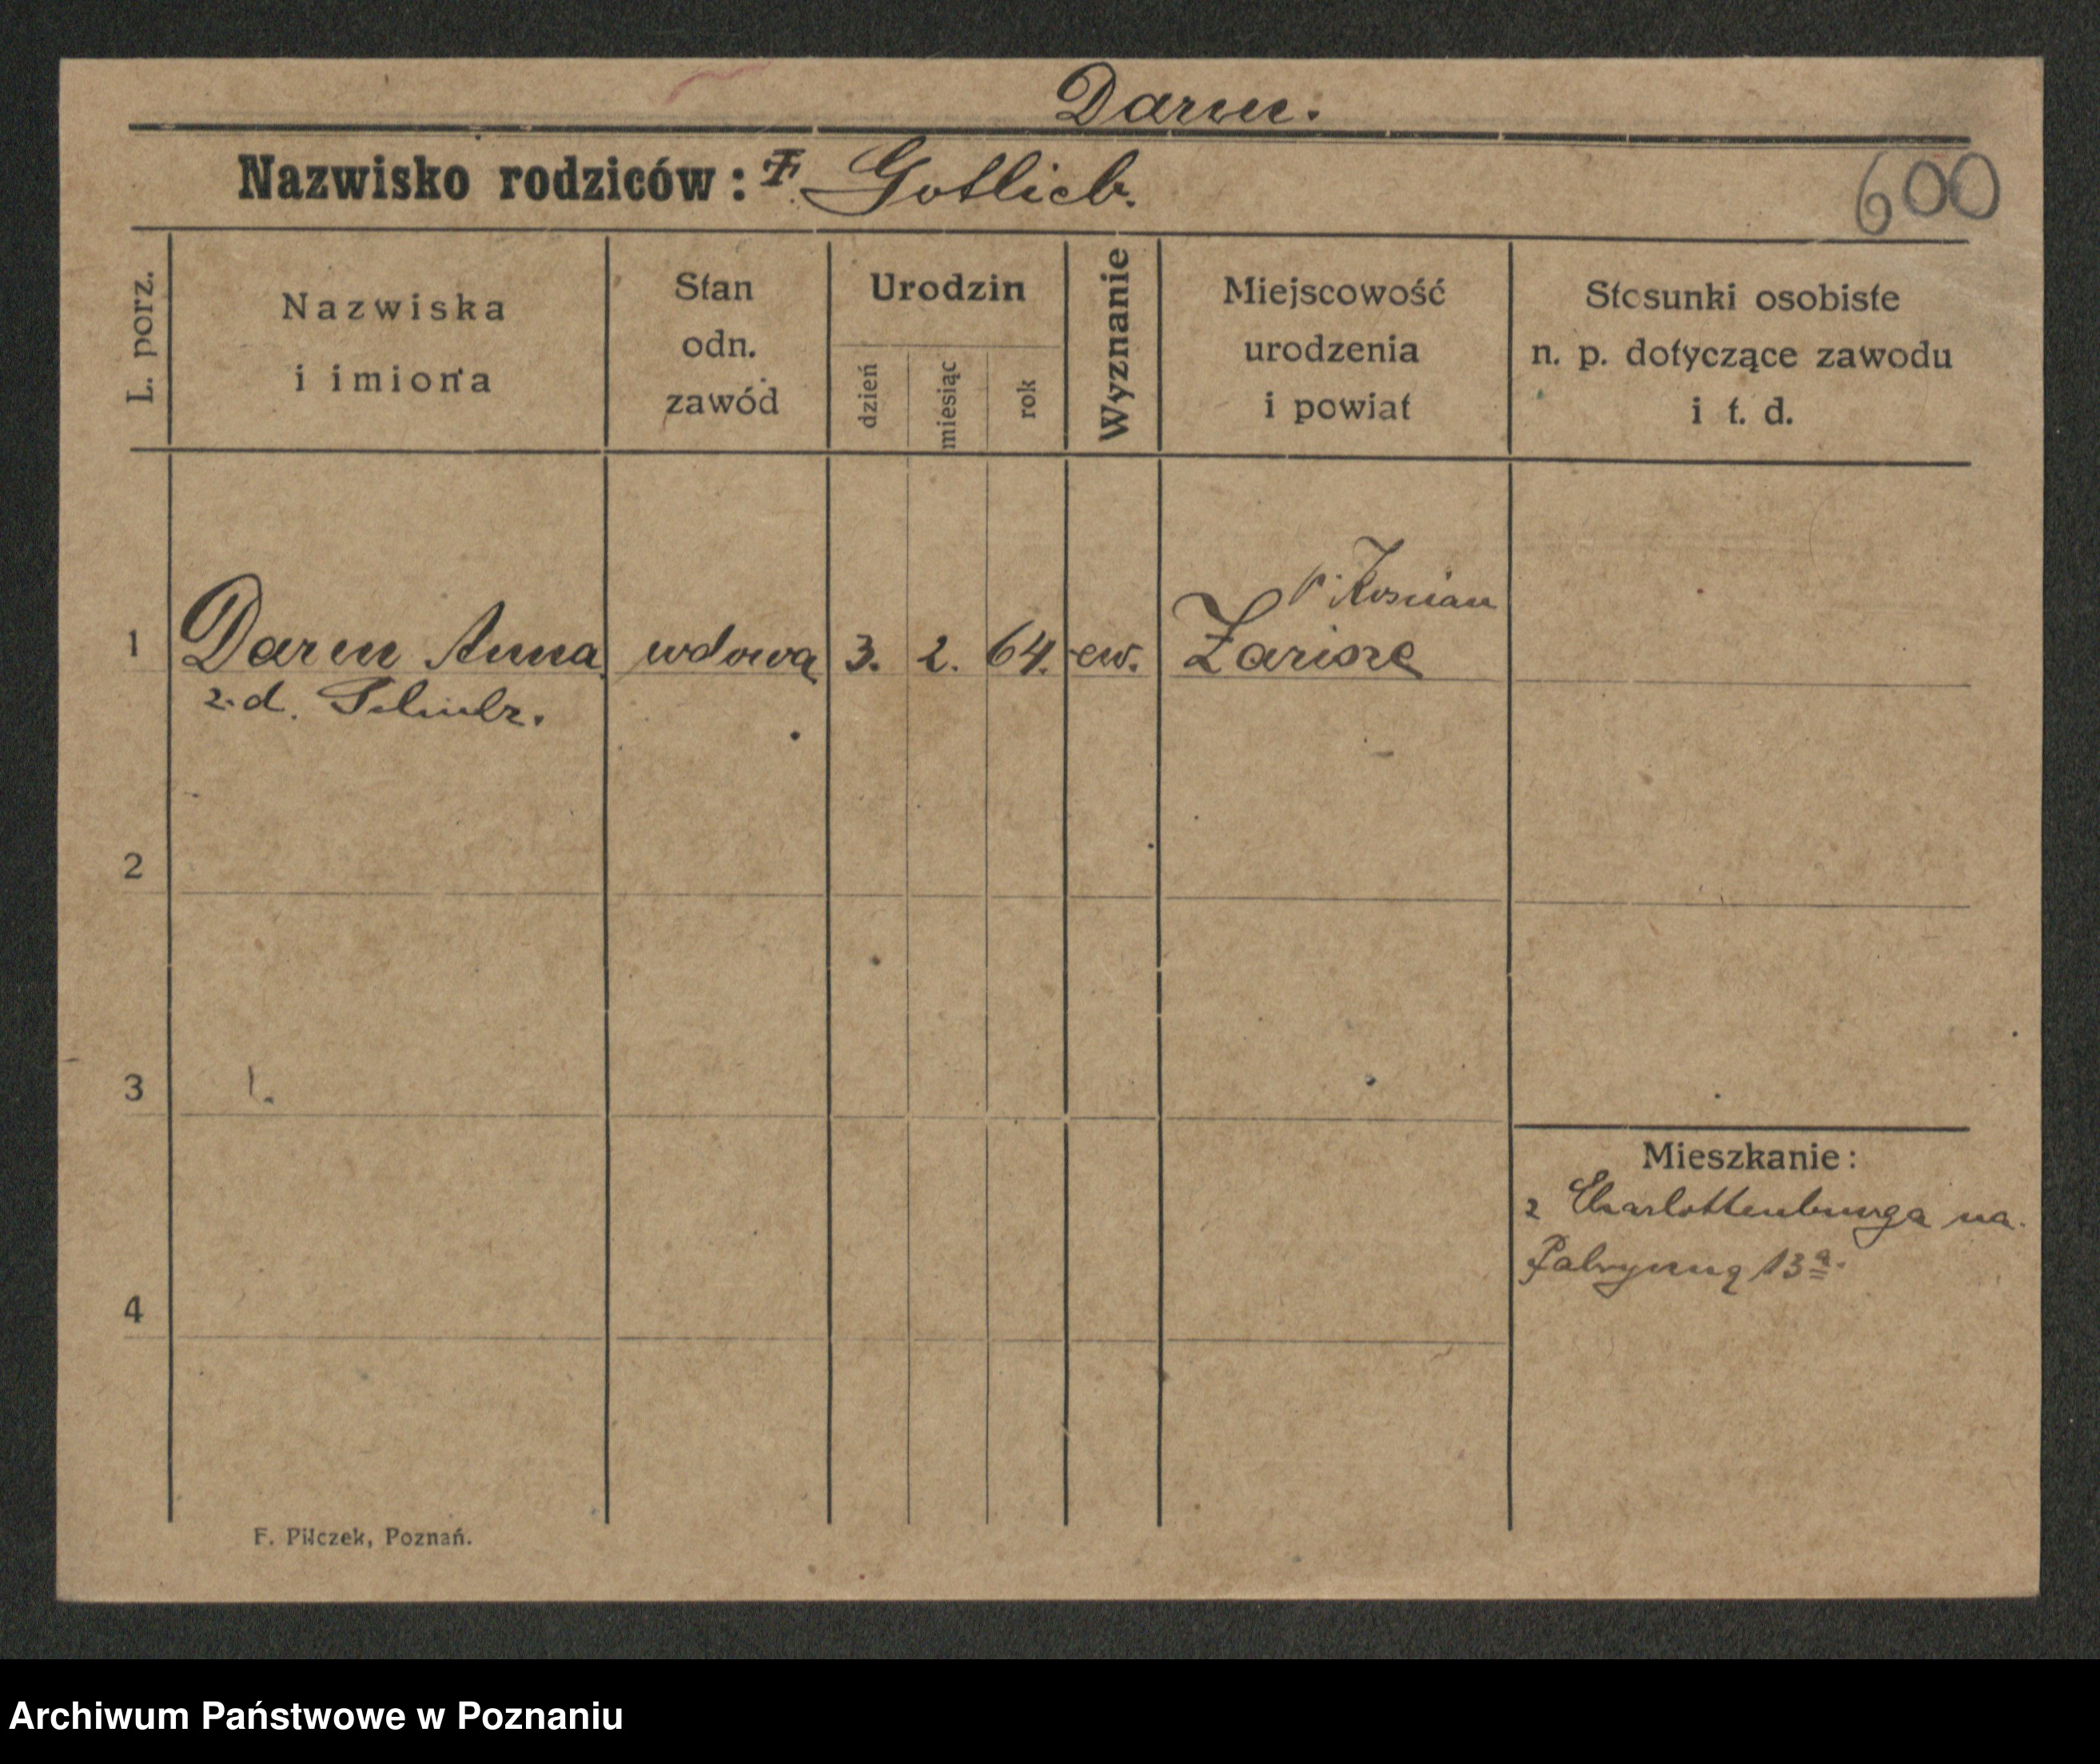 Darm.
Nazwisko rodziców: F. Gotlieb.
600
L. porz.
Nazwiska
i imiona
Stan
odn.
zawód
Urodzin
dzień
miesiąc
rok
Wyznanie
Miejscowość
urodzenia
i powiat
Stosunki osobiste
n. p. dotyczące zawodu
i t. d.
p. Kościan
1 Darm Anna wdowa 3. 2. 64. ew.
z. d.
2
3
Mieszkanie:
z Charlottenburga na
13a.
4
F. Pilczek, Poznań.
Archiwum Państwowe w Poznaniu